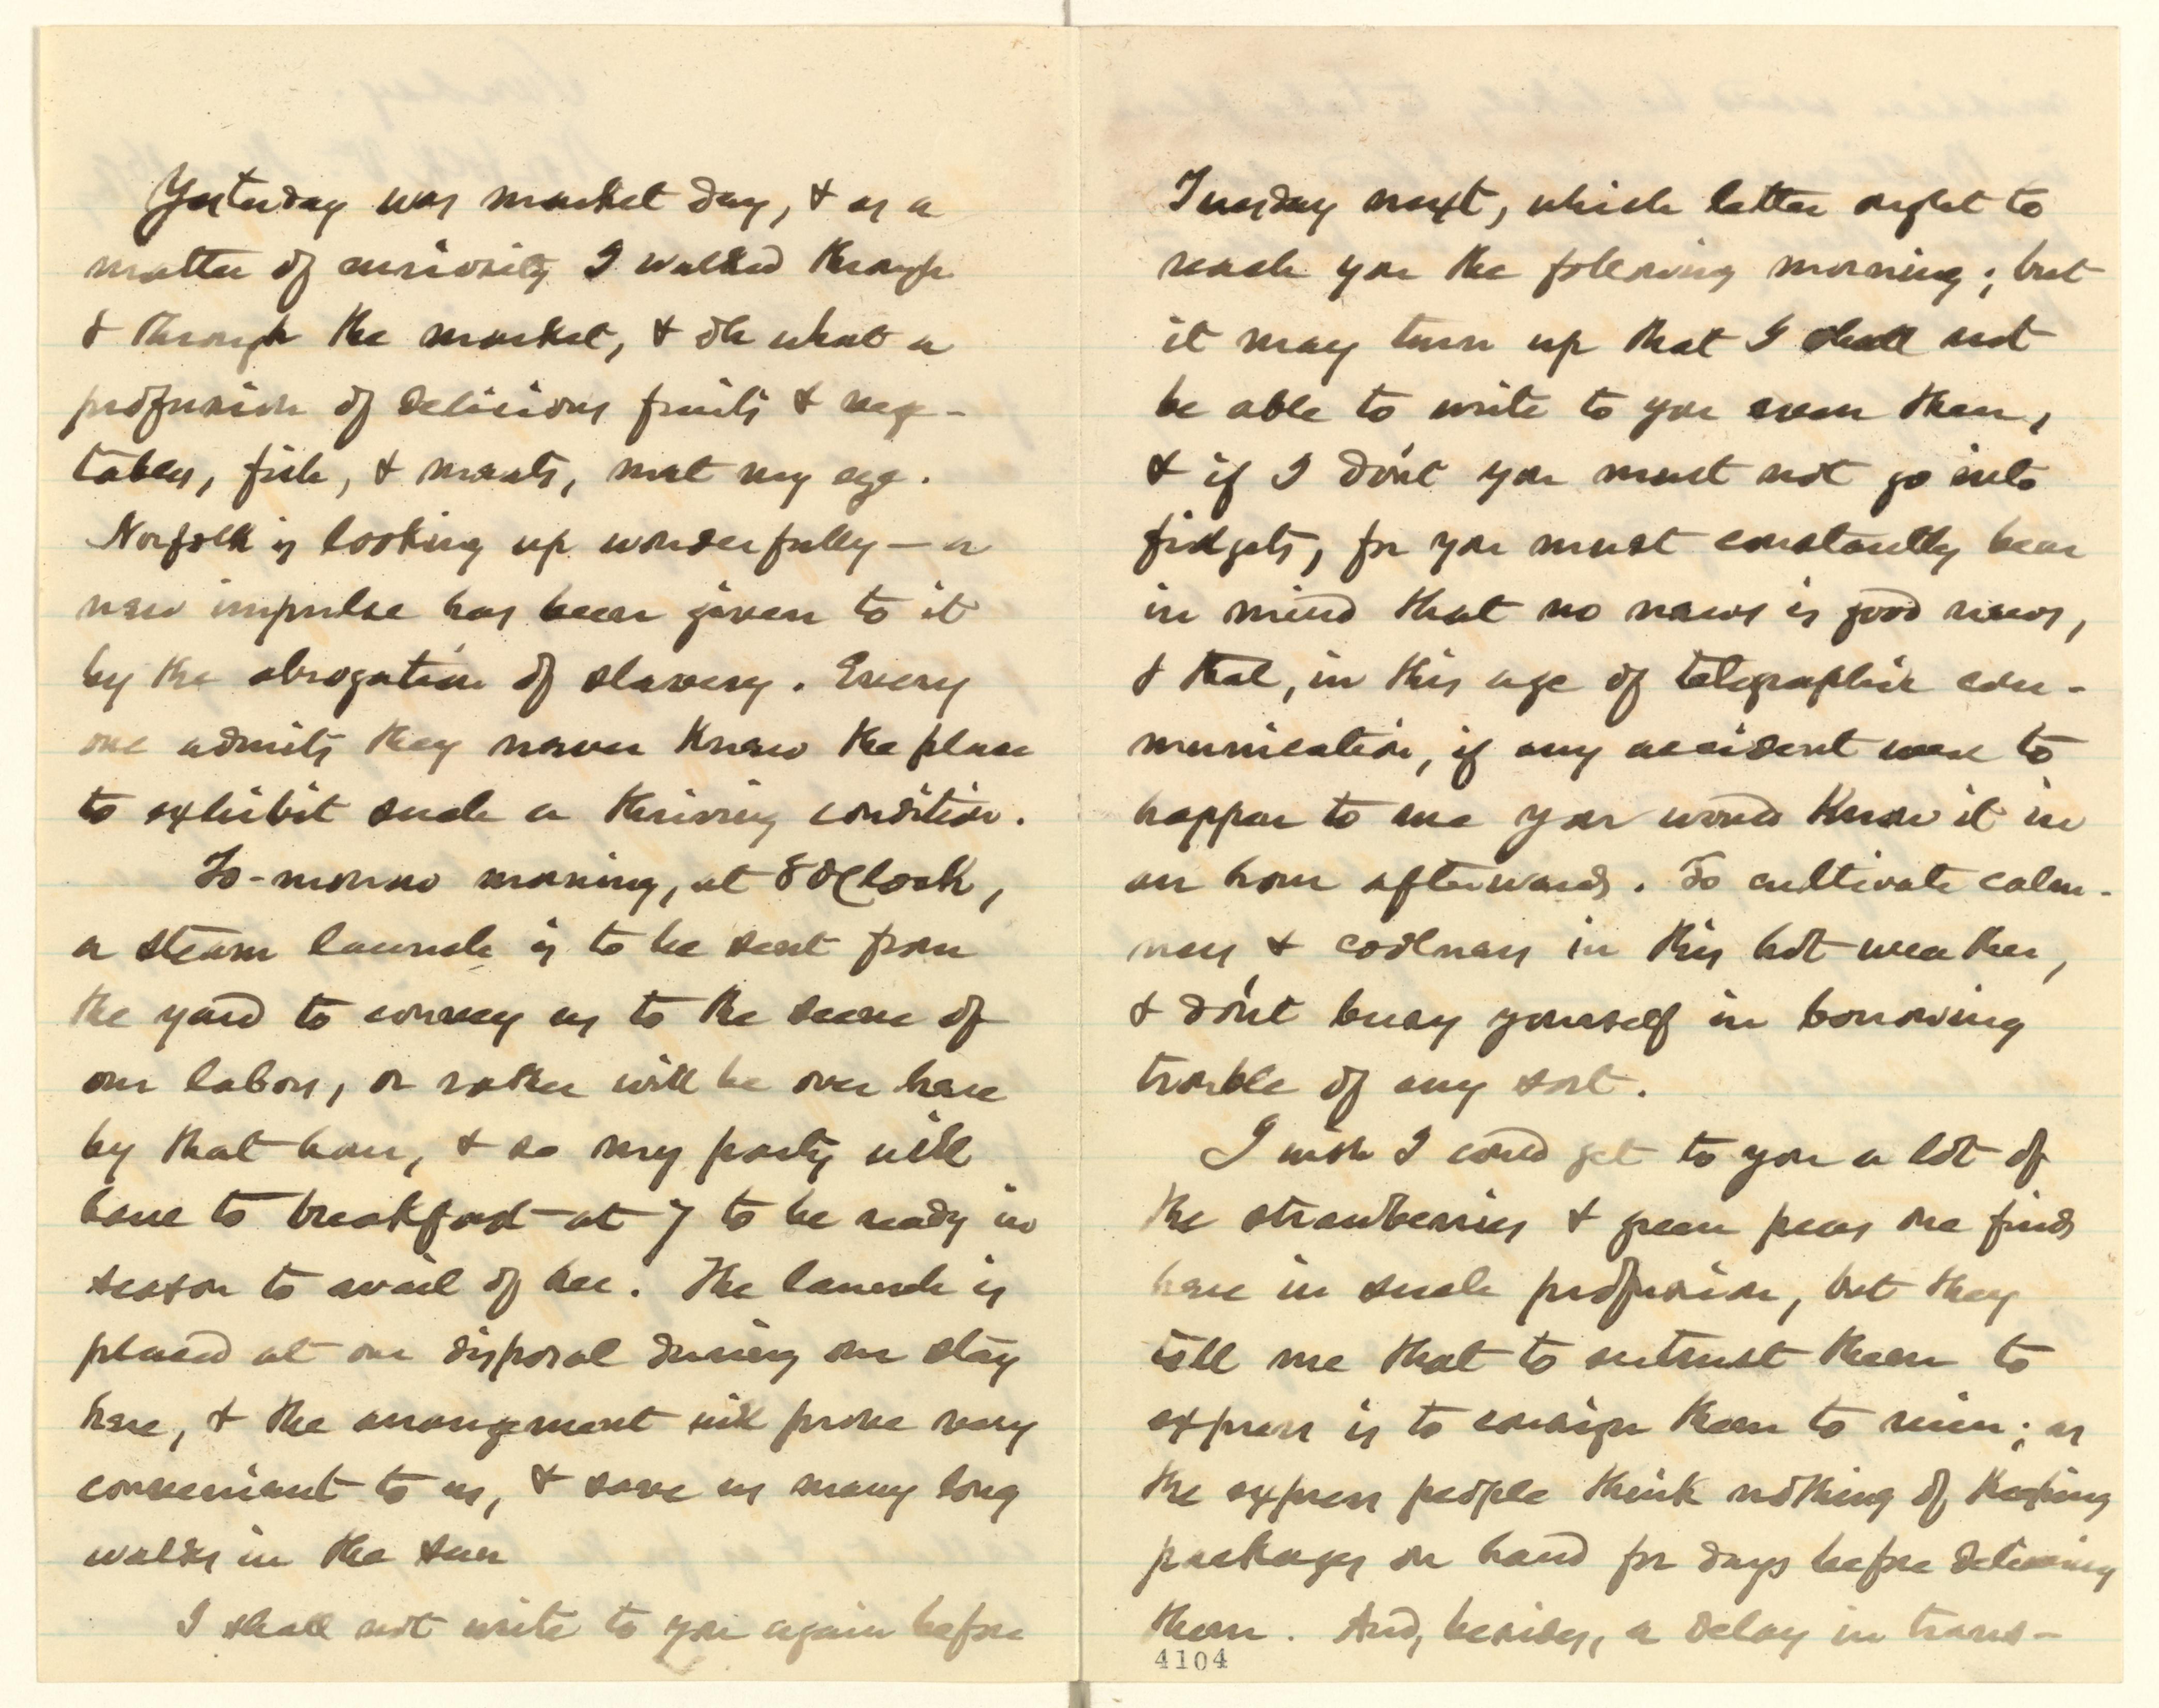 Yesterday was market day, & as a
matter of curiosity I walked through
& through the market, & oh what a
profusion of delicious fruits & vege-
tables, fish, & meats, met my eye.
Norfolk is looking up wonderfully — a
new impulse has been given to it
by the abrogation of slavery. Every
one admits they never knew the place
to exhibit such a thriving condition.
To-morrow morning, at 8 O'Clock,
a steam launch is to be sent from
the yard to convey us to the scene of
our labors, or rather will be over here
by that hour, & so my party will
have to breakfast at 7 to be ready in
season to avail of her. The launch is
placed at our disposal during our stay
here, & the arrangement will prove very
convenient to us, & save us many long
walks in the sun
I shall not write to you again before
Tuesday next, which letter ought to
reach you the following morning; but
it may turn up that I shall not
be able to write to you even then,
& if I don't you must not go into
fidgets, for you must constantly bear
in mind that no news is good news,
& that, in this age of telegraphic com-
munication, if any accident were to
happen to me you would know it in
an hour afterwards. So cultivate calm-
ness & coolness in this hot weather,
& don't busy yourself in borrowing
trouble of any sort.
I wish I could get to you a lot of
the strawberries & green peas one finds
here in such profusion, but they
tell me that to entrust them to
express is to consign them to ruin; as
the express people think nothing of keeping
packages on hand for days before delivering
them. And, besides, a delay in trans-
4104